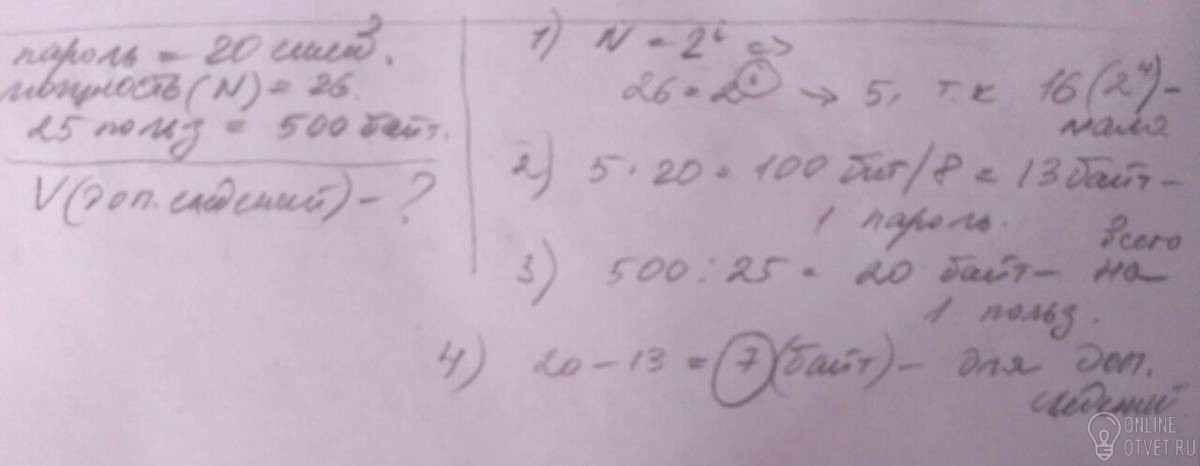 пароль = 20 симв.
мощность (N) = 26.
25 польз = 500 байт.
V(доп. сведений) - ?
1) N = 2^i =>
26 = 2^i → 5, т.к 16(2^4) -
мало
2) 5 · 20 = 100 бит/8 = 13 байт -
1 пароль.
3) 500 : 25 = 20 байт - всего на
1 польз.
4) 20 - 13 = 7 (байт) - для доп.
сведений
ONLINE
OTVET.RU